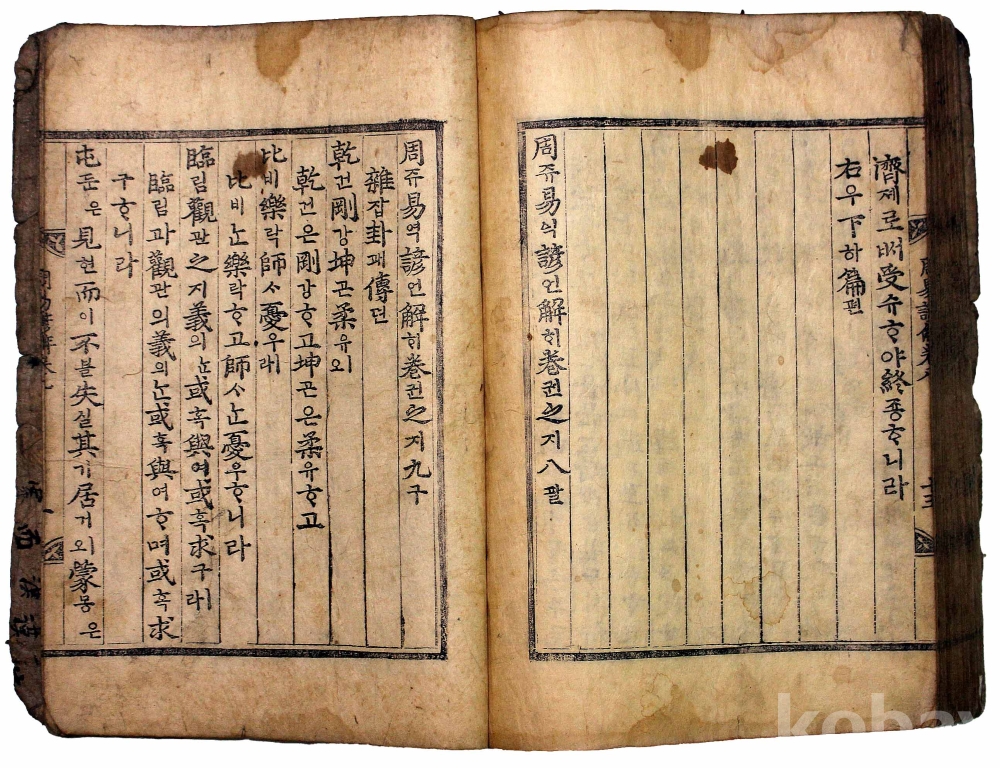 濟제로ᄡᅥ受슈ᄒᆞ야終죵ᄒᆞ니라
右우下하篇편
周쥬易역諺언解ᄒᆡ卷권之지八팔
周쥬易역諺언解ᄒᆡ卷권之지九구
雜잡卦괘傳뎐
乾건剛강坤곤柔유외
乾건은剛강ᄒᆞ고坤곤은柔유ᄒᆞ고
比비樂락師ᄉᆞ憂우래
比비ᄂᆞᆫ樂락ᄒᆞ고師ᄉᆞᄂᆞᆫ憂우ᄒᆞ니라
臨림觀관之지義의ᄂᆞᆫ或혹與여或혹求구래
臨림과觀관의義의ᄂᆞᆫ或혹與여ᄒᆞ며或혹求
구ᄒᆞ니라
屯둔은見현而이不블失실其기居거외蒙몽은
kobay